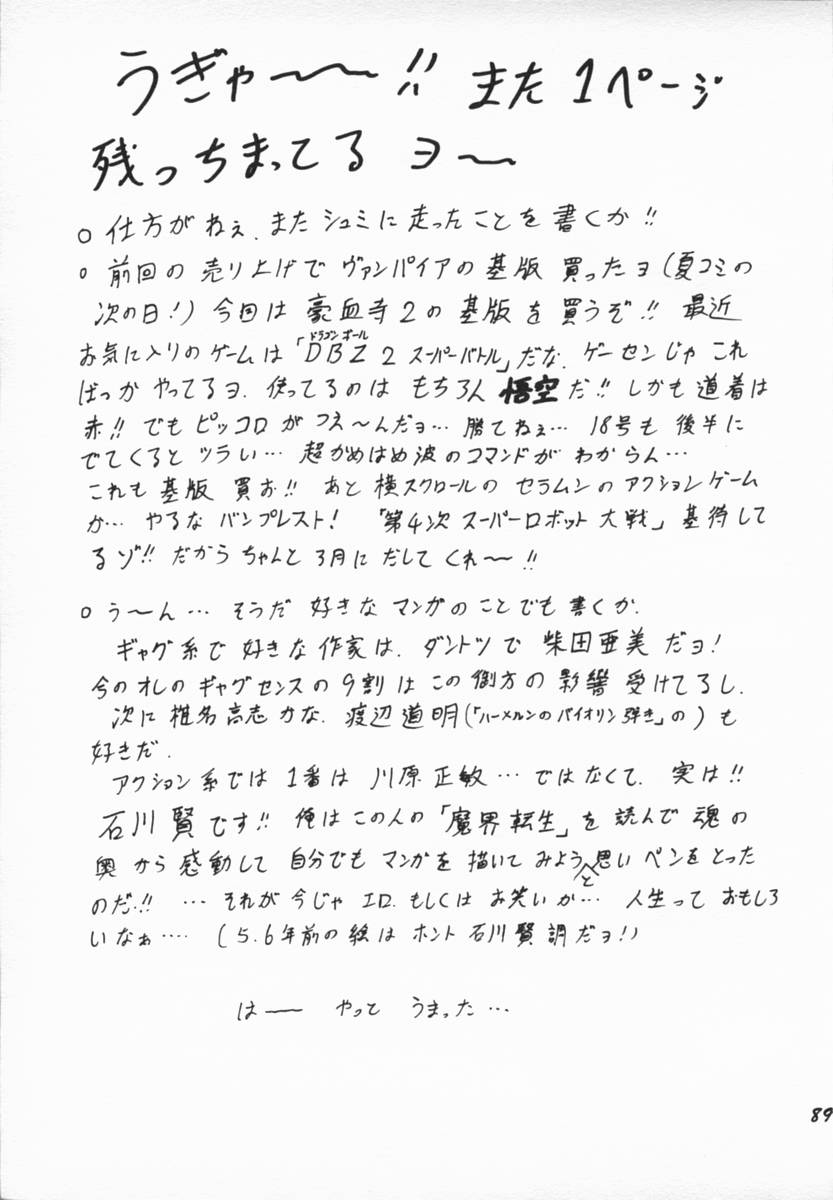 うぎゃ〜〜!! また1ページ
残っちまってるヨ〜
○仕方がねぇ、またシュミに走ったことを書くか!!
○前回の売り上げでヴァンパイアの基版買ったヨ(夏コミの
次の日!)今回は豪血寺2の基版を買うぞ!! 最近
お気に入りのゲームは「DBZ2スーパーバトル」だな、ゲーセンじゃこれ
ドラゴンボール
ばっかやってるヨ、使ってるのはもちろん悟空だ!!しかも道着は
赤!!でもピッコロがつえ〜んだョ…勝てねぇ…18号も後半に
でてくるとツラい…超かめはめ波のコマンドがわからん…
これも基版買お!! あと横スクロールのセラムンのアクションゲーム
か…やるなバンプレスト! 「第4次スーパーロボット大戦」基待して
るゾ!!だからちゃんと3月にだしてくれ〜!!
○う〜ん…そうだ好きなマンガのことでも書くか、
ギャグ系で好きな作家は、ダントツで柴田亜美だョ!
今のオレのギャグセンスの9割はこの御方の影響受けてるし、
次に椎名高志かな、渡辺道明(「ハーメルンのバイオリン弾き」の)も
好きだ、
アクション系では1番は川原正敏…ではなくて、実は!!
石川賢です!!俺はこの人の「魔界転生」を読んで魂の
奥から感動して自分でもマンガを描いてみようと思いペンをとった
のだ!! …それが今じゃエロ、もしくはお笑いか…人生っておもしろ
いなぁ…(5.6年前の絵はホント石川賢調だョ!)
はー やっと うまった…
89